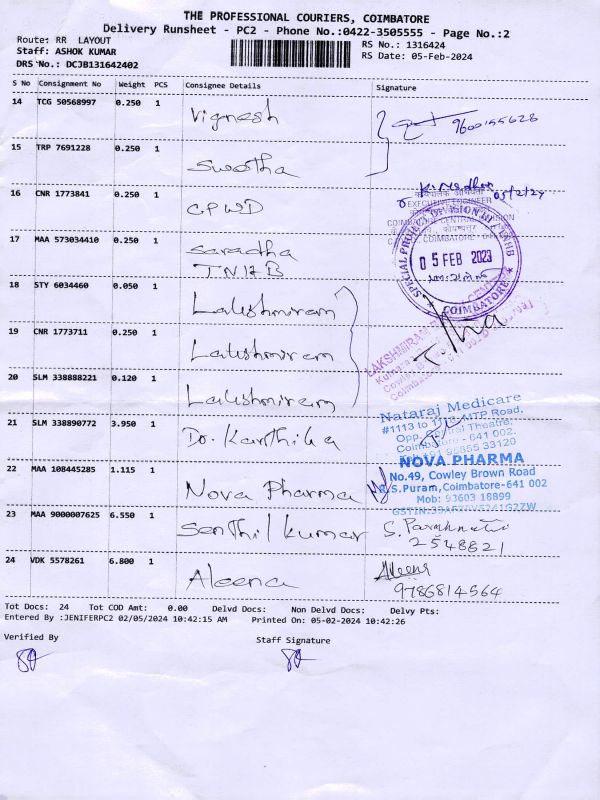 THE PROFESSIONAL COURIERS, COIMBATORE
Delivery Runsheet - PC2 - Phone No.:0422-3505555 - Page No.:2
Route: RR LAYOUT
Staff: ASHOK KUMAR
DRS No.: DCJB131642402
RS No.: 1316424
RS Date: 05-Feb-2024
S No Consignment No Weight PCS Consignee Details Signature
14 TCG 50568997 0.250 1 Vignesh 9600155628
15 TRP 7691228 0.250 1 Swetha
16 CNR 1773841 0.250 1 CPWD
EXECUTIVE ENGINEER
COIMBATORE CENTRAL DIVISION
COIMBATORE
17 MAA 573034410 0.250 1 Saradha
TNHB
SPECIAL PROJECT DIVISION TNHB
05 FEB 2023
COIMBATORE
18 STY 6034460 0.050 1 Lakshmiram
19 CNR 1773711 0.250 1 Lakshmiram
LAKSHMIRAM
20 SLM 338888221 0.120 1 Lakshmiram
21 SLM 338890772 3.950 1 Dr. Karthika
Nataraj Medicare
#1113 to AITP Road,
Opp. Central Theatre,
Coimbatore - 641 002.
33120
22 MAA 108445285 1.115 1 Nova Pharma
NOVA PHARMA
No.49, Cowley Brown Road
R.S.Puram,Coimbatore-641 002
Mob: 93603 18899
23 MAA 9000007625 6.550 1 Senthil Kumar S.
2548821
24 VDK 5578261 6.800 1 Aleena Aleena
9786814564
Tot Docs: 24 Tot COD Amt: 0.00 Delvd Docs: Non Delvd Docs: Delvy Pts:
Entered By :JENIFERPC2 02/05/2024 10:42:15 AM Printed On: 05-02-2024 10:42:26
Verified By Staff Signature